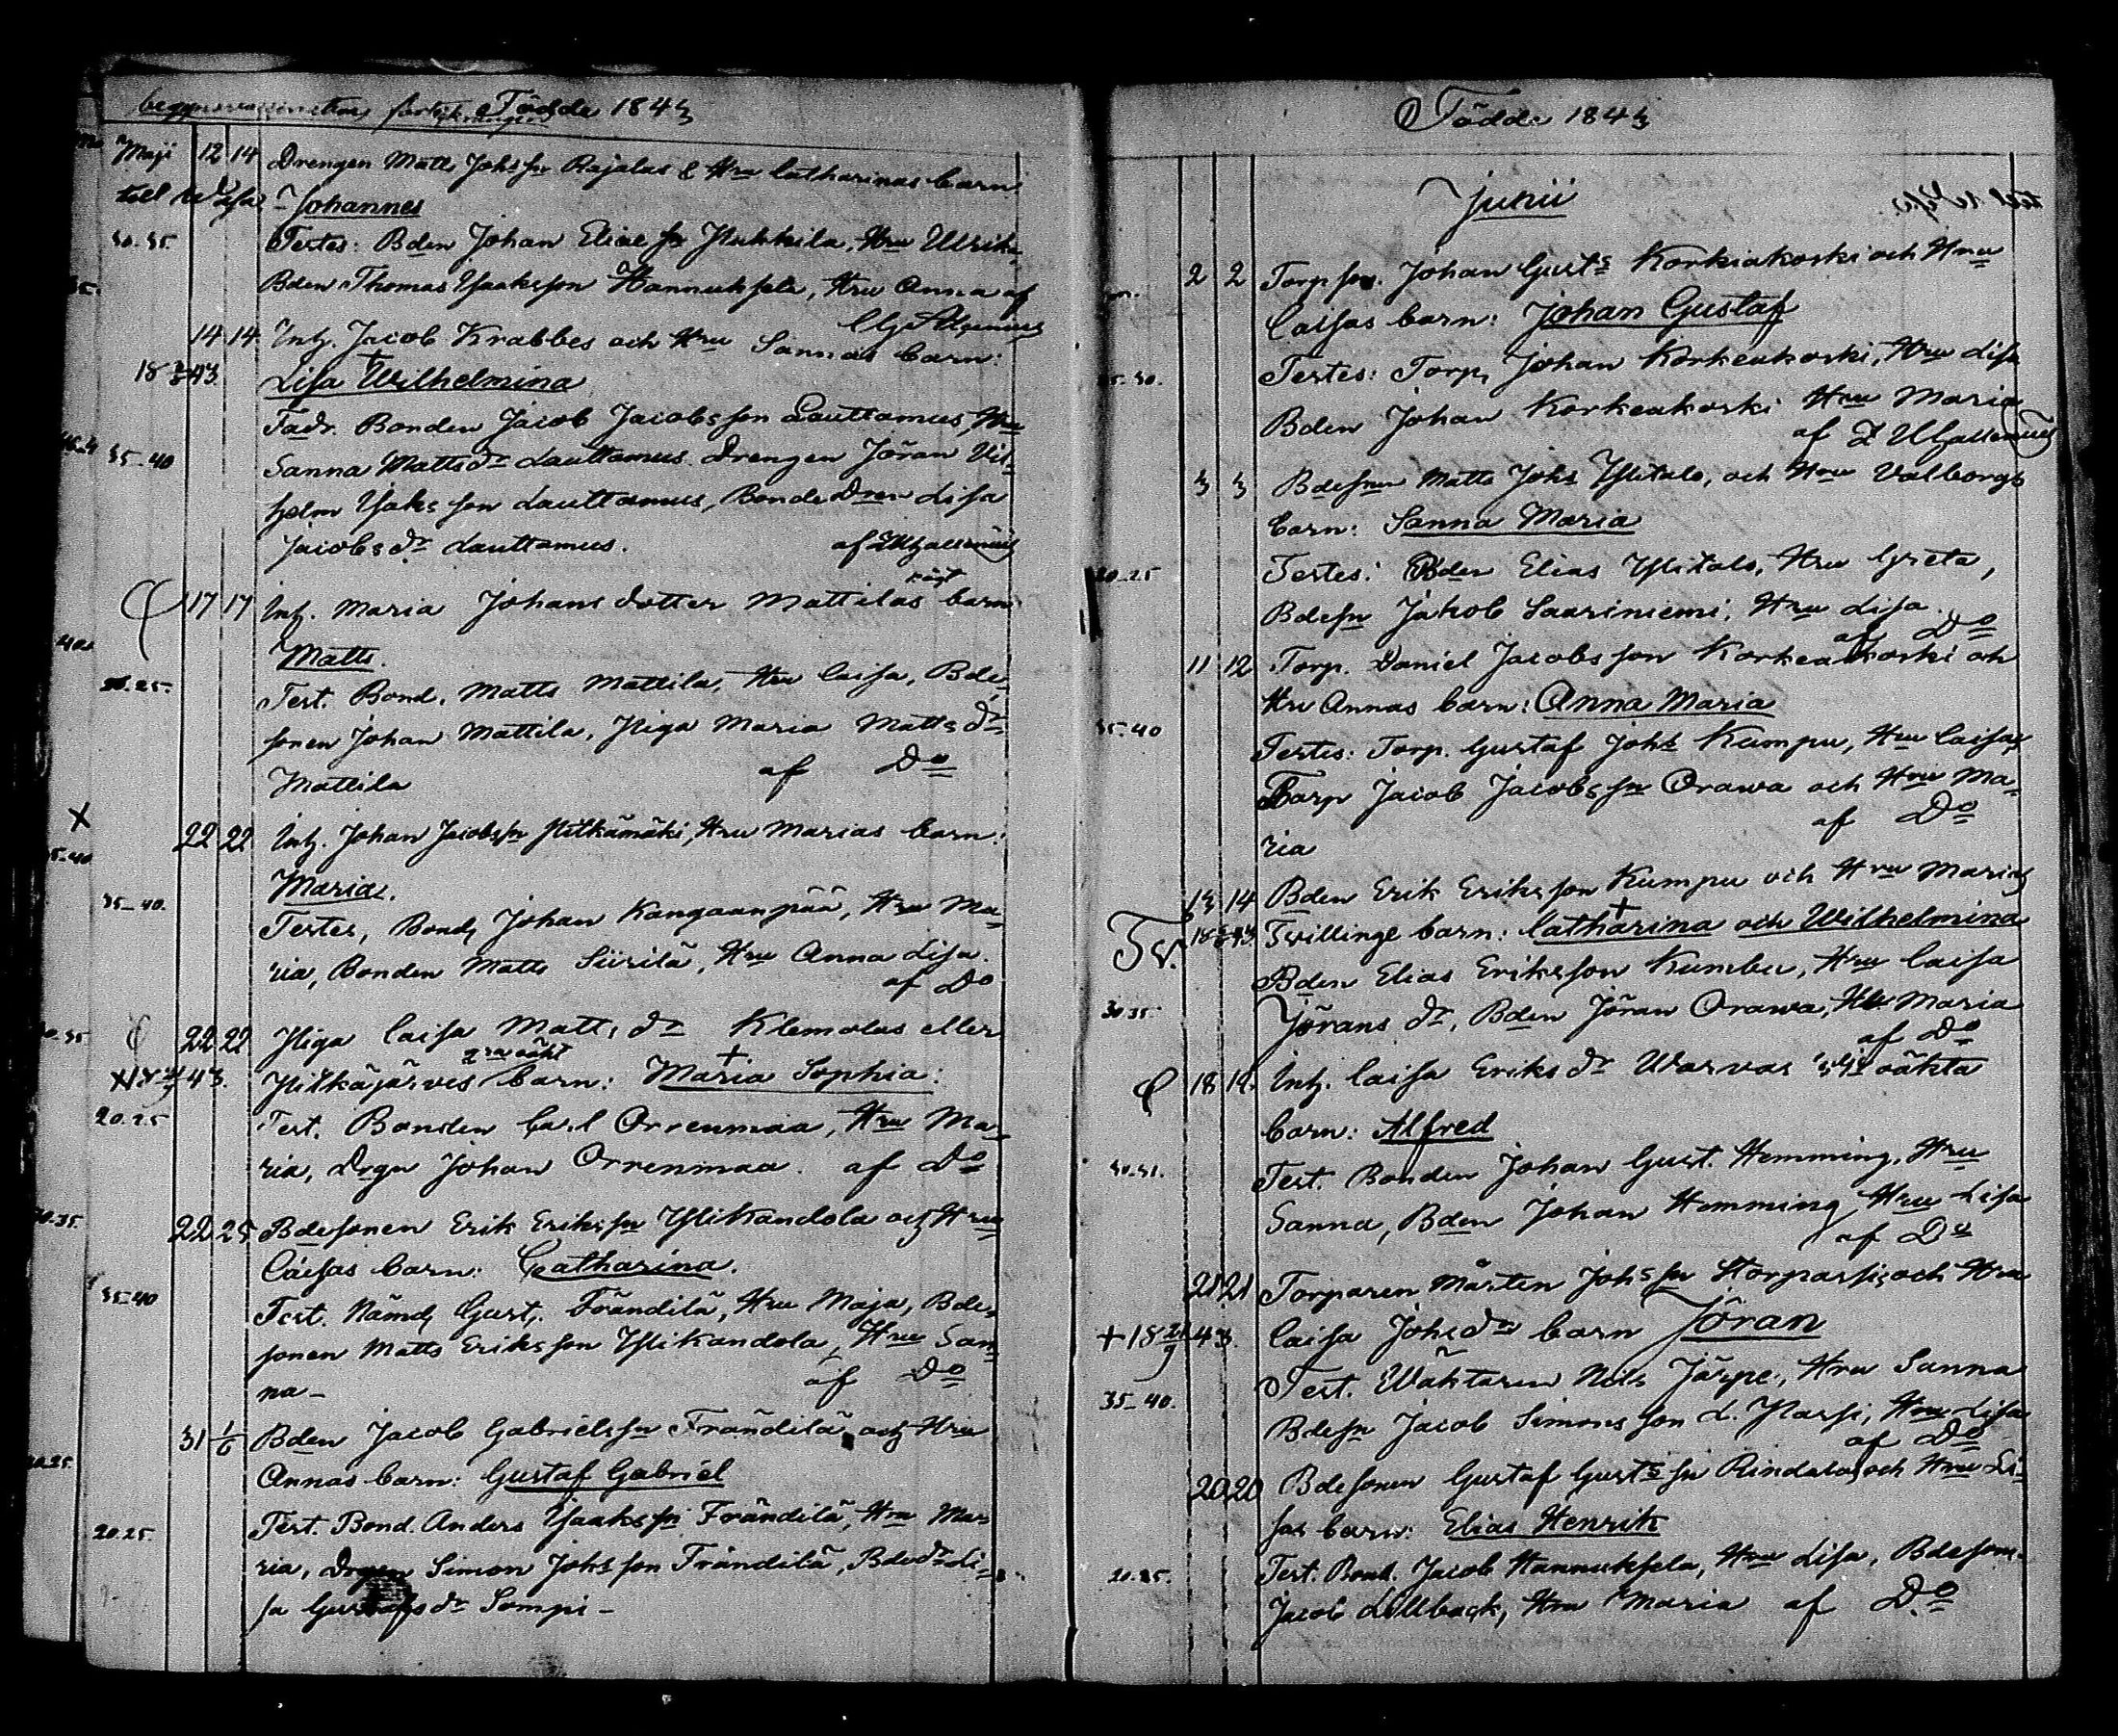 Födde 1843
Maji 12 14 Drengen Matts Johs sn Rajalas & Hru Catharinas barn
Johannes
30-35. Testes: Bden Johan Eliæ sn Yli, Hru Ulrika
Bden Thomas Isaksson Hannuksela, Hru Anna af
14 14 Inh. Jacob Krabbes och Hru Sannas barn:
18 43. Lisa Wilhelmina
Fadr. Bonden Jacob Jacobsson Lauttamus, Hru
35-40 Sanna Mattsdr Lauttamus. Drengen Jöran Vil-
helm Isaksson Lauttamus, Bonde Dren Lisa
Jacobsdr Lauttamus. af
17 17 Inh. Maria Johans dotter Mattilas oägt barn
Matts.
20.25. Test. Bond. Matts Mattila, Hru Caisa, Bde-
sonen Johan Mattila, Piga Maria Matts dr
Mattila af Do
X
22 22 Inh. Johan Jacobssn Pitkämäki, Hru Marias barn:
Maria.
35-40. Testes, Bond. Johan Kangaanpää, Hru Ma-
ria, Bonden Matts Siirilä, Hru Anna Lisa.
af Do
22 22 Piga Caisa Matts dr Klemolas eller
43. Pitkäjärvis oäkt barn: Maria Sophia:
20.25 Test. Bonden Carl Orrenmaa, Hru Ma-
ria, Drgn Johan Orrenmaa. af Do
22 25 Bdesonen Erik Erikssn Ylikandola och Hru
Caisas barn: Catharina.
35-40 Test. Nämd. Gust. Frändilä, Hru Maja, Bde-
sonen Matts Eriksson Ylikandola, Hru San-
na- af Do
31 1/6 Bden Jacob Gabrielssn Frändilä och Hru
Annas barn: Gustaf Gabriel
20.25. Test. Bond. Anders Isakssn Frändilä, Hru Ma-
ria, Drgen Simon Johsson Frändilä, Bdedr Li-
sa Gustafsdr Sompi-
Födde 1843
Junii
2 2 Torpson. Johan Gusts Korkiakoski och Hru
Caisas barn: Johan Gustaf
Testes: Torp. Johan Korkeakoski, Hru Lisa
Bden Johan Korkeakoski Hru Maria
af
3 3 Bdesnen Matts Johs Ylitalo, och Hru Valborgs
barn: Sanna Maria
20-25 Testes: Bden Elias Ylitalo, Hru Greta,
Bdesn Jakob Saariniemi, Hru Lisa.
af Do
11 12 Torp. Daniel Jacobsson Korkeakoski och
Hru Annas barn: Anna Maria
35-40 Testes: Torp. Gustaf Johs Kumpu, Hru Caisa,
Torp Jacob Jacobssn Orawa och Hru Ma-
af Do
ria
13 14 Bden Erik Eriksson Kumpu och Hru Marias
Tv. 18 43. Tvillinge barn: Catharina och Wilhelmina
Bden Elias Eriksson Kumbu, Hru Caisa
30.35. Jörans dr, Bden Jöran Orawa, Hu. Maria
af Do
18 19. Inh. Caisa Eriks dr Warvas oäkta
barn: Alfred
Test. Bonden Johan Gust. Hemming, Hru
Sanna, Bden Johan Hemming, Hru Lisa
af Do
21 21 Torparen Mårten Johs sn och Hru
+ 18 21/9 43. Caisa Johsdrs barn Jöran
35-40. Test. Wäktaren Nils Järpe, Hru Sanna
Bdesn Jacob Simonsson L. Passi, Hru Lisa
af Do
20 20 Bdesonen Gustaf Gusts sn Rindalas och Hru Li-
sas barn: Elias Henrik
Test. Bond. Jacob Hannuksela, Hru Lisa, Bdeson.
Jacob Lillback, Hru Maria af Do